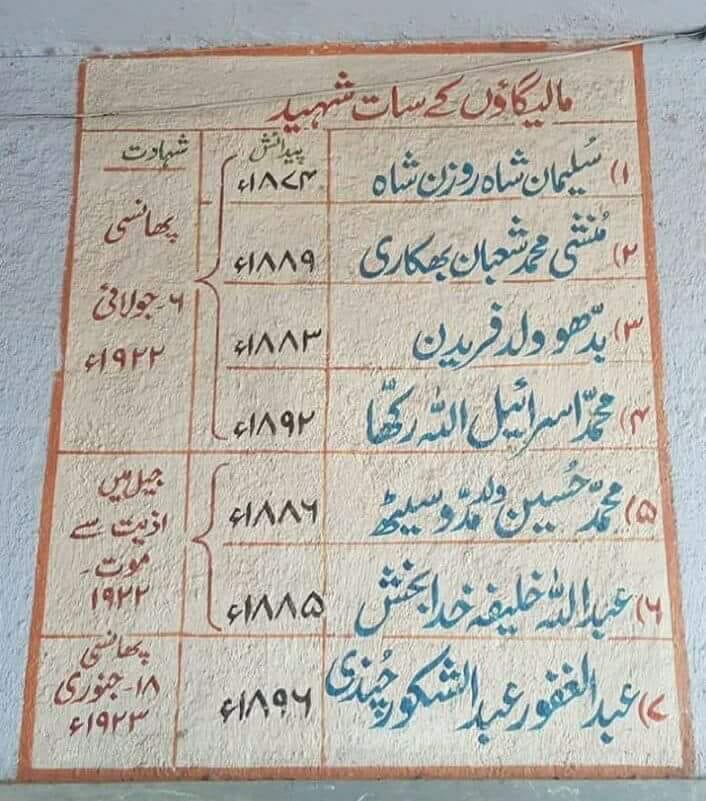 مالیگاؤں کے سات شہید
پیدائش
شہادت
۱) سُلیمان شاہ روزن شاہ
۱۸۷۴ء
۲) مُنشی محمد شعبان بھکاری
۱۸۸۹ء
۳) بدّھو ولد فریدن
۱۸۸۳ء
۴) محمّد اسرائیل اللہ رکھّا
۱۸۹۲ء
پھانسی
۶-جولائی
۱۹۲۲ء
۵) محمّد حُسین ولد مدّو سیٹھ
۱۸۸۶ء
۶) عبداللہ خلیفہ خدا بخش
۱۸۸۵ء
جیل میں
اذیت سے
موت-
۱۹۲۲
۷) عبدالغفور عبدالشکور چُندی
۱۸۹۶ء
پھانسی
۱۸-جنوری
۱۹۲۳ء